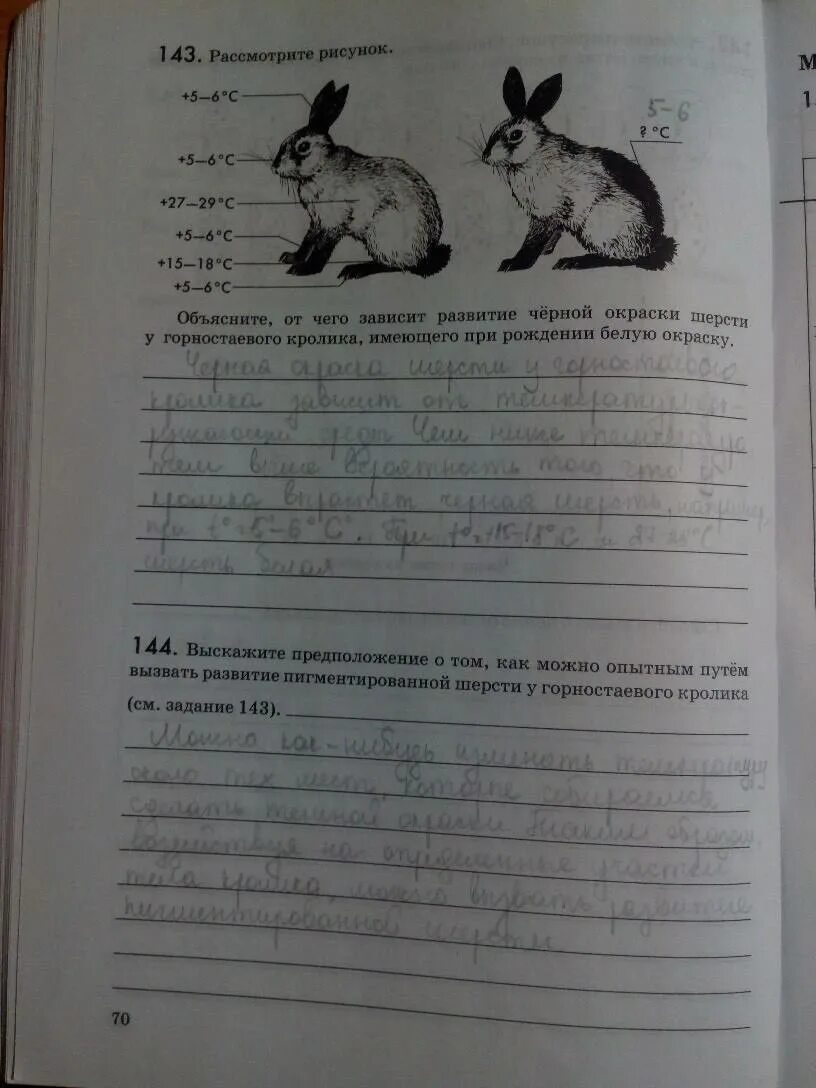 143. Рассмотрите рисунок.
+5–6°C
+5–6°C
+27–29°C
+5–6°C
+15–18°C
+5–6°C
5-6
? °C
М
1
Объясните, от чего зависит развитие чёрной окраски шерсти
у горностаевого кролика, имеющего при рождении белую окраску.
Черная окраска шерсти у горностаевого
кролика зависит от температуры ок-
ружающей среды Чем ниже температура
тем выше вероятность того, что у
кролика вырастет черная шерсть, например,
при t°=5-6°C. При t°=+15-18°C и
шерсть белая
144. Выскажите предположение о том, как можно опытным путём
вызвать развитие пигментированной шерсти у горностаевого кролика
(см. задание 143).
Можно как-нибудь изменять температуру
около тех мест, которые собираемся
сделать темной окраски Таким образом,
воздействуя на определенные участки
тела кролика, можно вызвать развитие
пигментированной шерсти
70